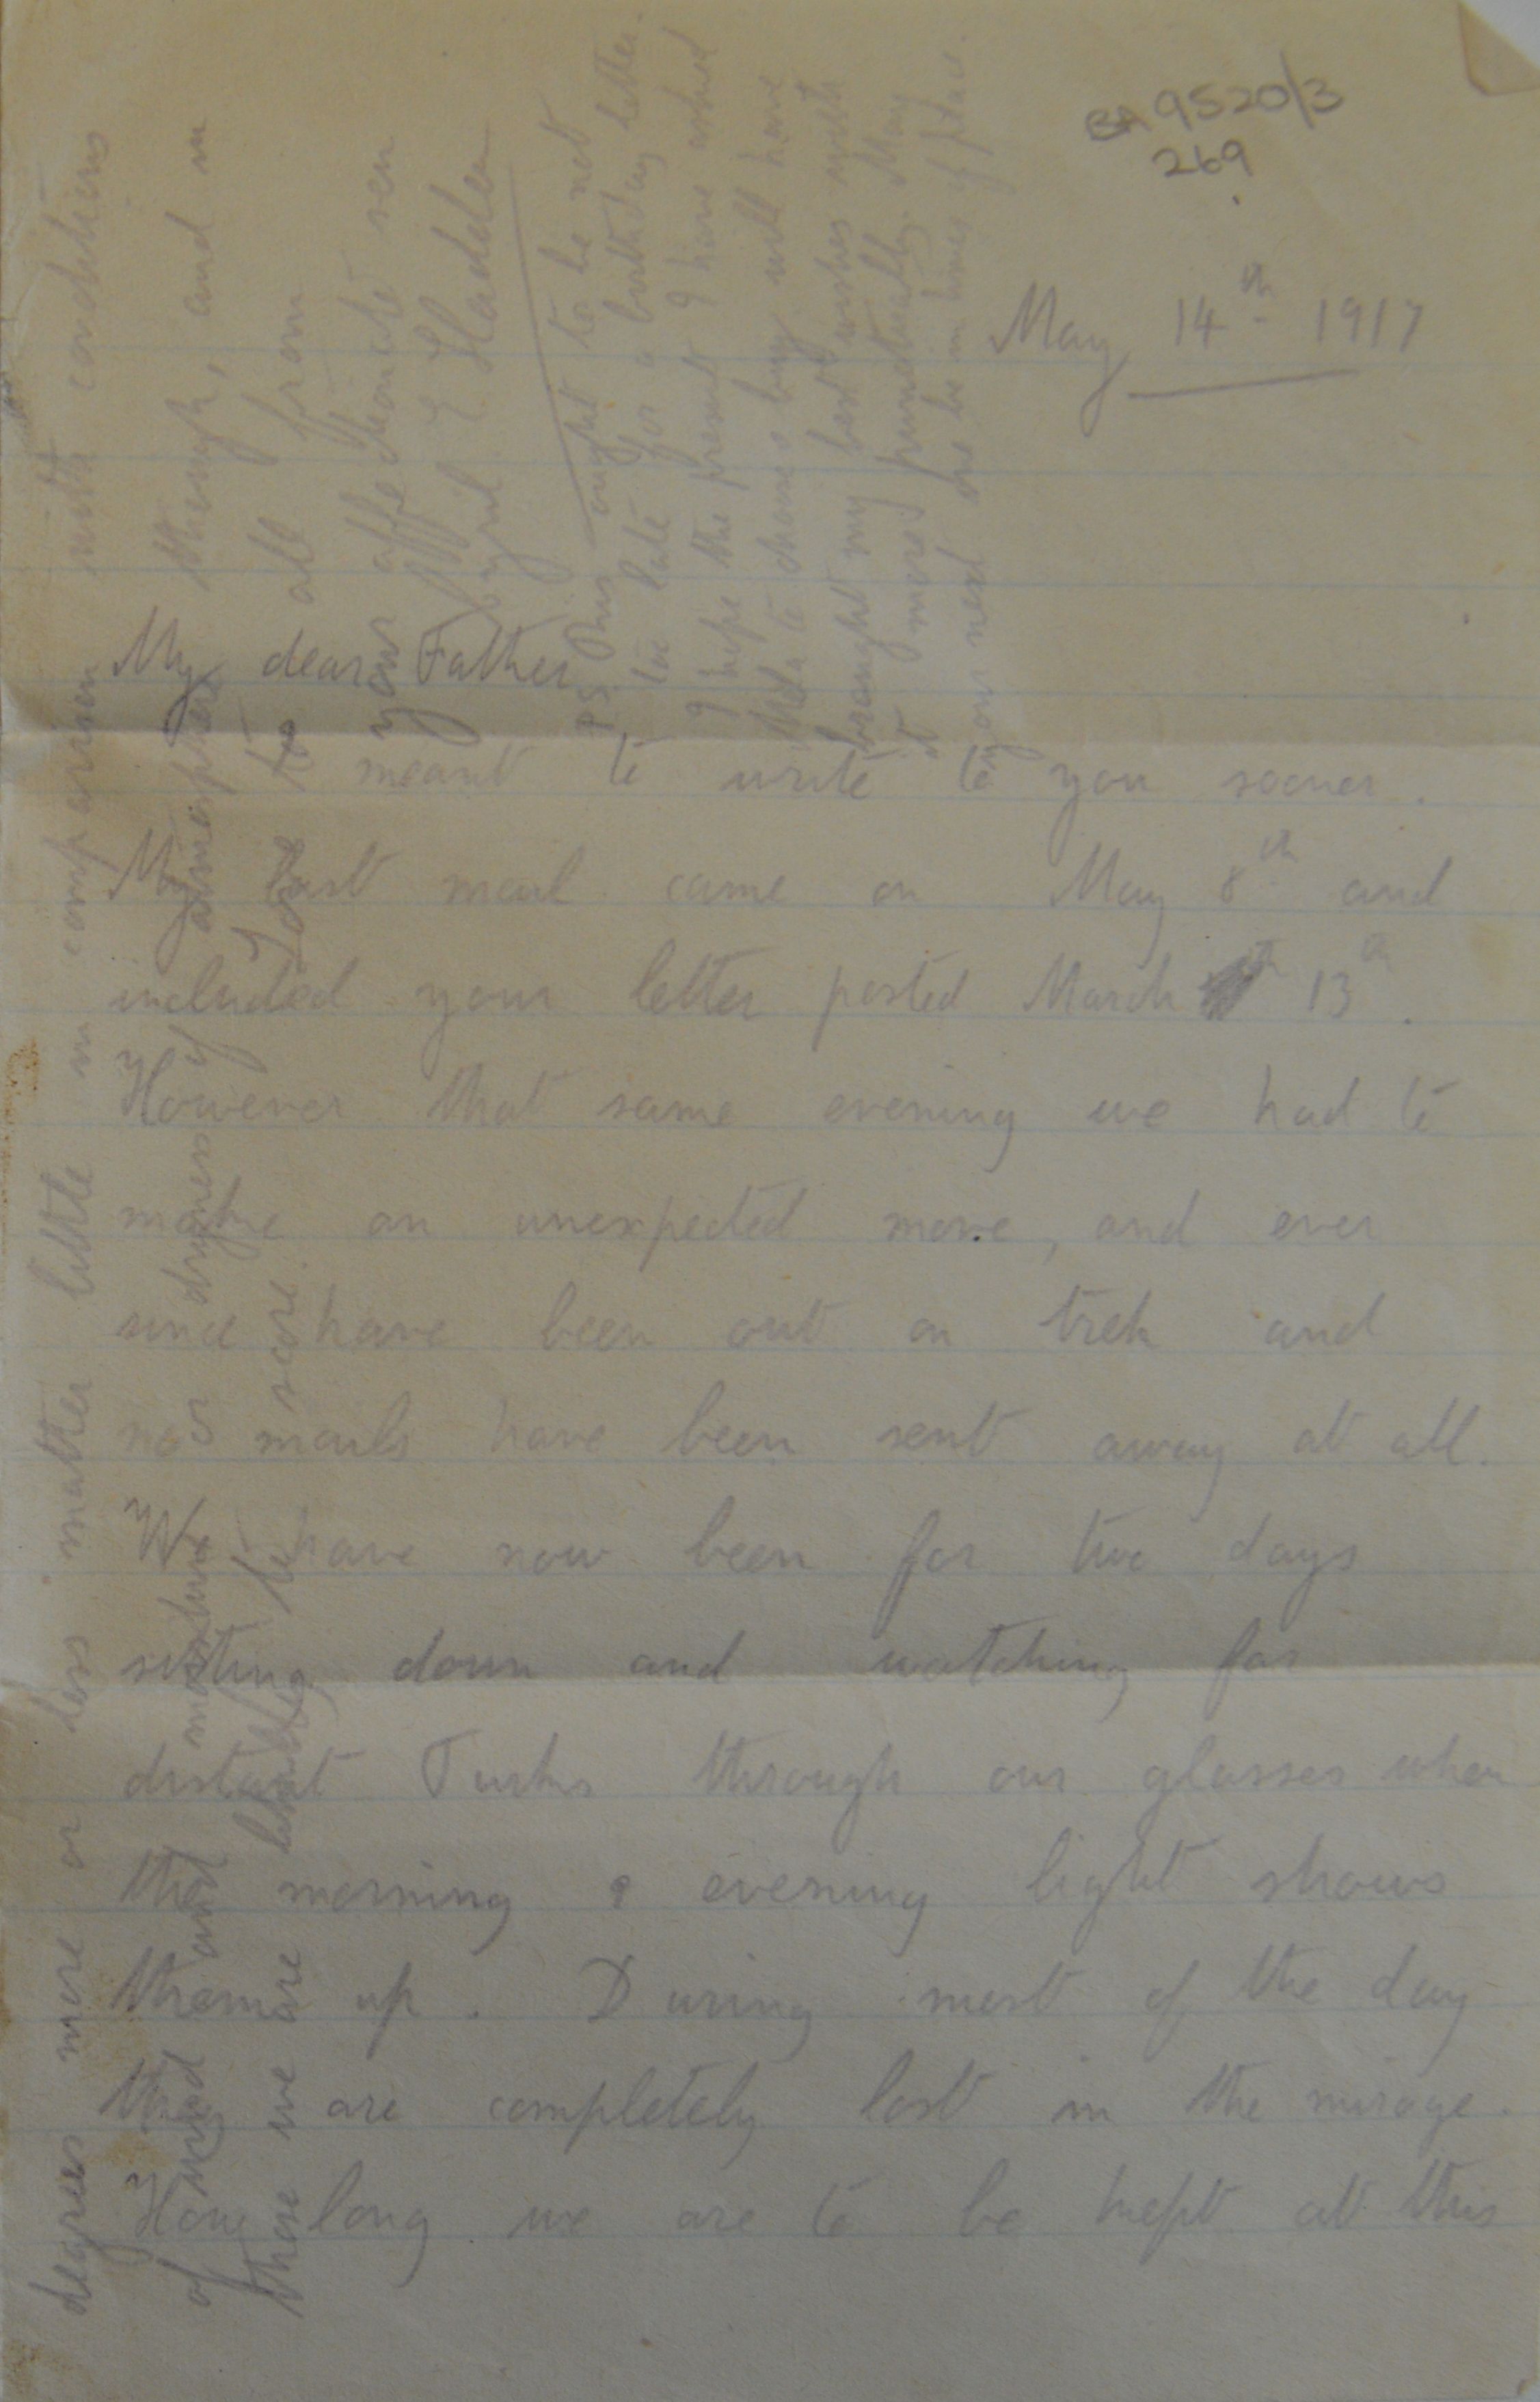 BA 9520/3
269
May 14th 1917
My dear Father
I meant to write to you sooner.
My last mail came on May 8th and
included your letter posted March 13th.
However that same evening we had to
make an unexpected move, and ever
since have been out on trek and
no mails have been sent away at all.
We have now been for two days
sitting down and watching for
distant Turks through our glasses when
the morning & evening light shows
them up. During most of the day
they are completely lost in the mirage.
How long we are to be kept at this
degrees more or less matter little in comparison with conditions
of wind and moisture or dryness of atmosphere though, and in
these we are likely to score. Love to all from
your affectionate son
Cyril E Hadden
PS. This ought to be not
too late for a birthday letter.
I hope the present I have asked
to choose & buy will have
brought my best wishes with
it more punctually. May
your next one be in times of peace.